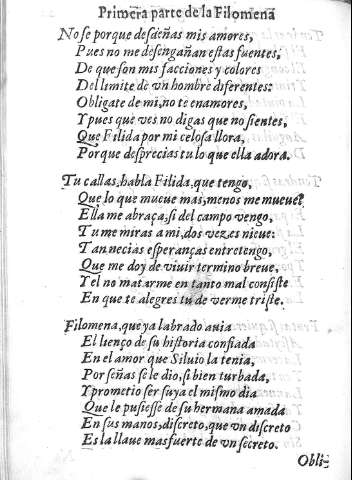 Primera parte de la Filomena
No se porque desdeñas mis amores,
Pues no me desengañan estas fuentes,
De que son mis facciones y colores
Del limite de vn hombre diferentes:
Obligate de mi, no te enamores,
Y pues que ves no digas que no sientes,
Que Filida por mi celosa llora,
Porque desprecias tu lo que ella adora.
Tu callas, habla Filida, que tengo,
Que lo que mueue mas, menos me mueue?
Ella me abraça, si del campo vengo,
Tu me miras a mi, dos vezes nieue:
Tan necias esperanças entretengo,
Que me doy de viuir termino breue,
Y el no matarme en tanto mal consiste
En que te alegres tu de verme triste.
Filomena, que ya labrado auia
El lienço de su historia confiada
En el amor que Siluio la tenia,
Por señas se le dio, si bien turbada,
Y prometio ser suya el mismo dia
Que le pusiesse de su hermana amada
En sus manos, discreto, que vn discreto
Es la llaue mas fuerte de vn secreto.
Obli-